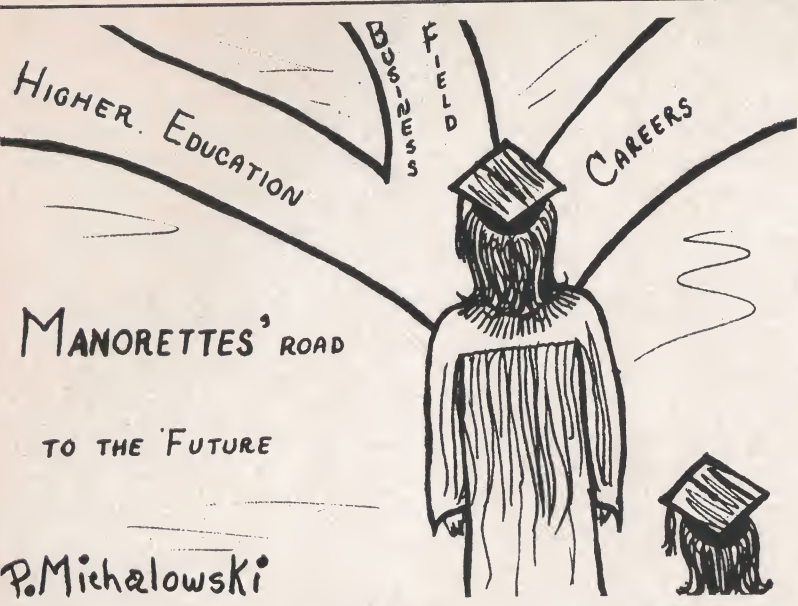 HIGHER EDUCATION
BUSINESS
FIELD
CAREERS
MANORETTES' ROAD
TO THE FUTURE
P. Michalowski